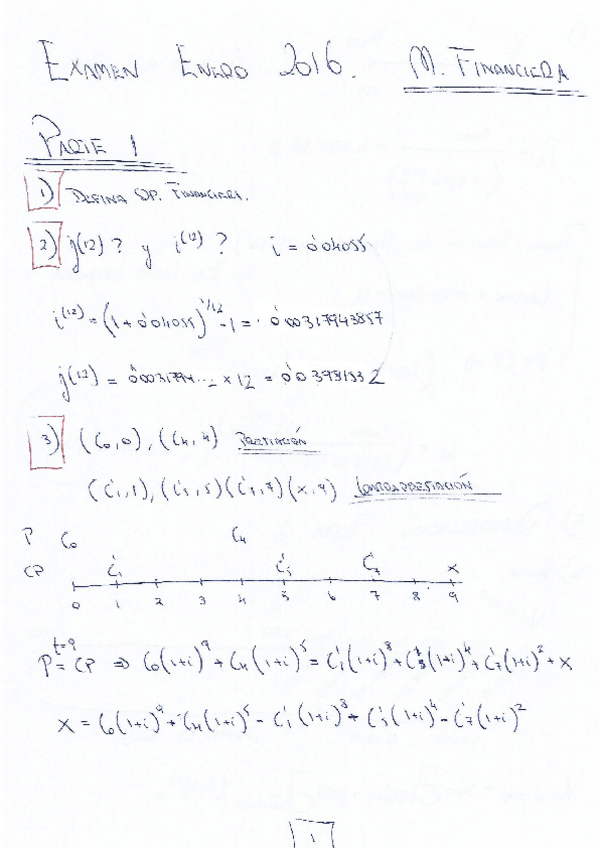 EXAMEN ENERO 2016. M. FINANCIERA
PARTE 1
1) DEFINA OP. FINANCIERA.
2) j(12)? y i(12)? i = 0'04055
i(12) = (1 + 0'04055)^1/12 - 1 = 0'00317943857
j(12) = 0'0031794... x 12 =
3) (C0,0), (C4,4) PRESTACIÓN
(C'1,1), (C'5,5) (C'7,7) (x,9) CONTRAPRESTACIÓN
P C0 C4
CP C'1 C'5 C'7 x
0 1 2 3 4 5 6 7 8 9
t=9
P = CP ⇒ C0(1+i)^9 + C4(1+i)^5 = C'1(1+i)^8 + C'5(1+i)^4 + C'7(1+i)^2 + x
x = C0(1+i)^9 + C4(1+i)^5 - C'1(1+i)^8 + C'5(1+i)^4 - C'7(1+i)^2
1